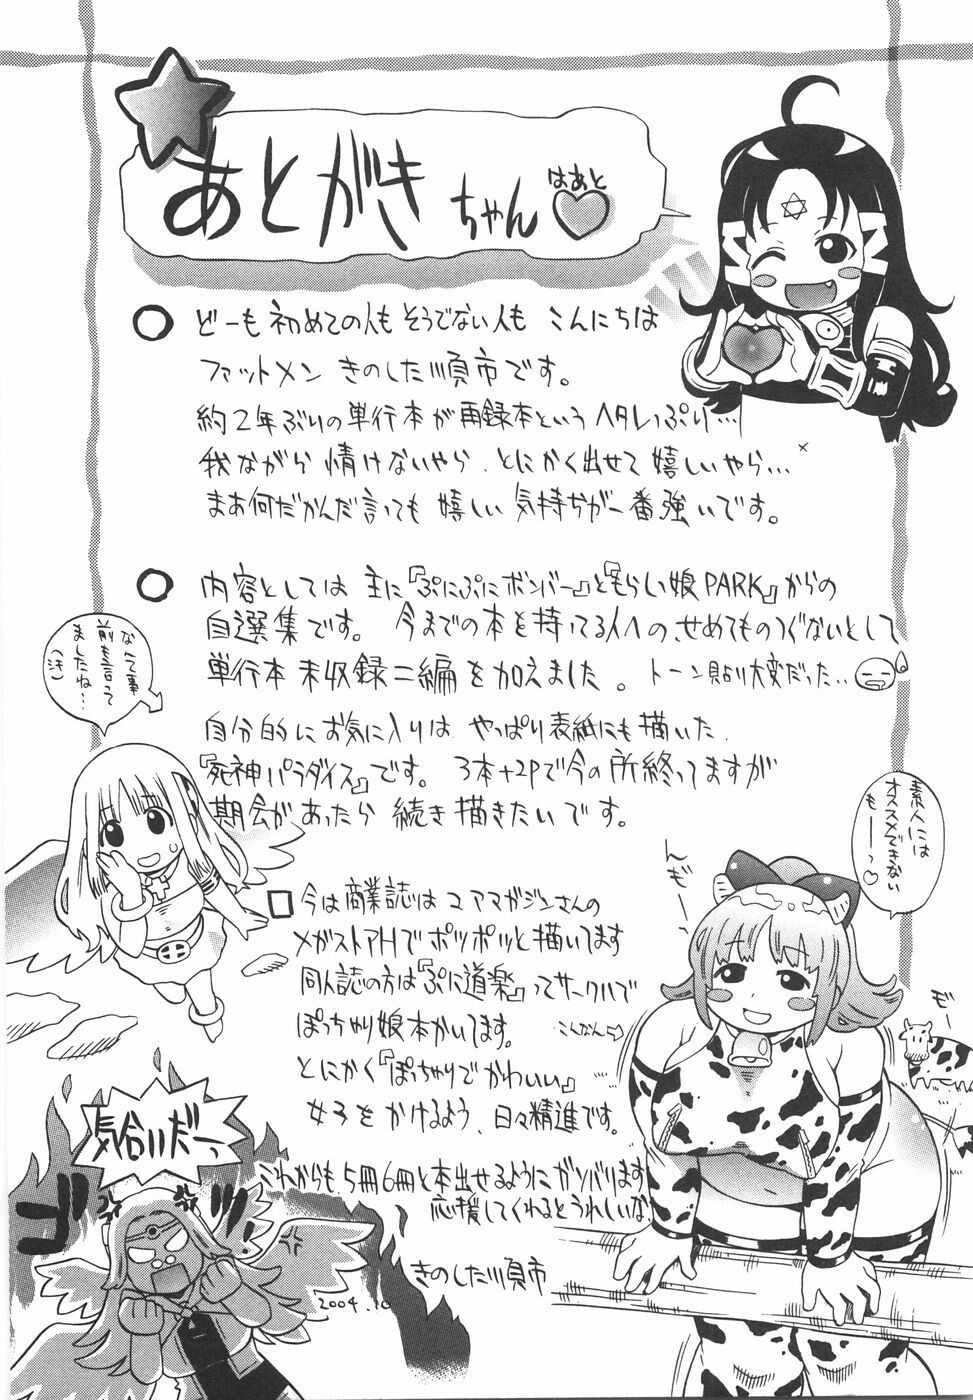 あとがきちゃん♡
はあと
○ どーも初めての人もそうでない人も こんにちは
ファットメン きのした順市です。
約2年ぶりの単行本が再録本というヘタレっぷり…
我ながら情けないやら、とにかく出せて嬉しいやら…
まあ何だかんだ言っても嬉しい気持ちが一番強いです。
○ 内容としては主に『ぷにぷにボンバー』と『もらい娘PARK』からの
自選集です。今までの本を持ってる人へのせめてものつぐないとして
単行本未収録二編を加えました。トーン貼り大変だった‥
なんて事
前も言って
ましたね…
(汗)
自分的にお気に入りは やっぱり表紙にも描いた
『死神パラダイス』です。3本+2Pで今の所終ってますが
期会があったら続き描きたいです。
素人には
オススメできない
もーーっ♡
んぎー
□ 今は商業誌はコアマガジンさんの
メガストアHでポツポツと描いてます
同人誌の方は『ぷに道楽』ってサークルで
ぽっちゃり娘本かいてます。
こんなん⇨
とにかく『ぽっちゃりでかわいい』
女子をかけるよう、日々精進です。
モー
気合いだーっ
ゴゴ
これからも5冊6冊と本出せるようにガンバリます
応援してくれるとうれしいな
きのした順市
2004.10